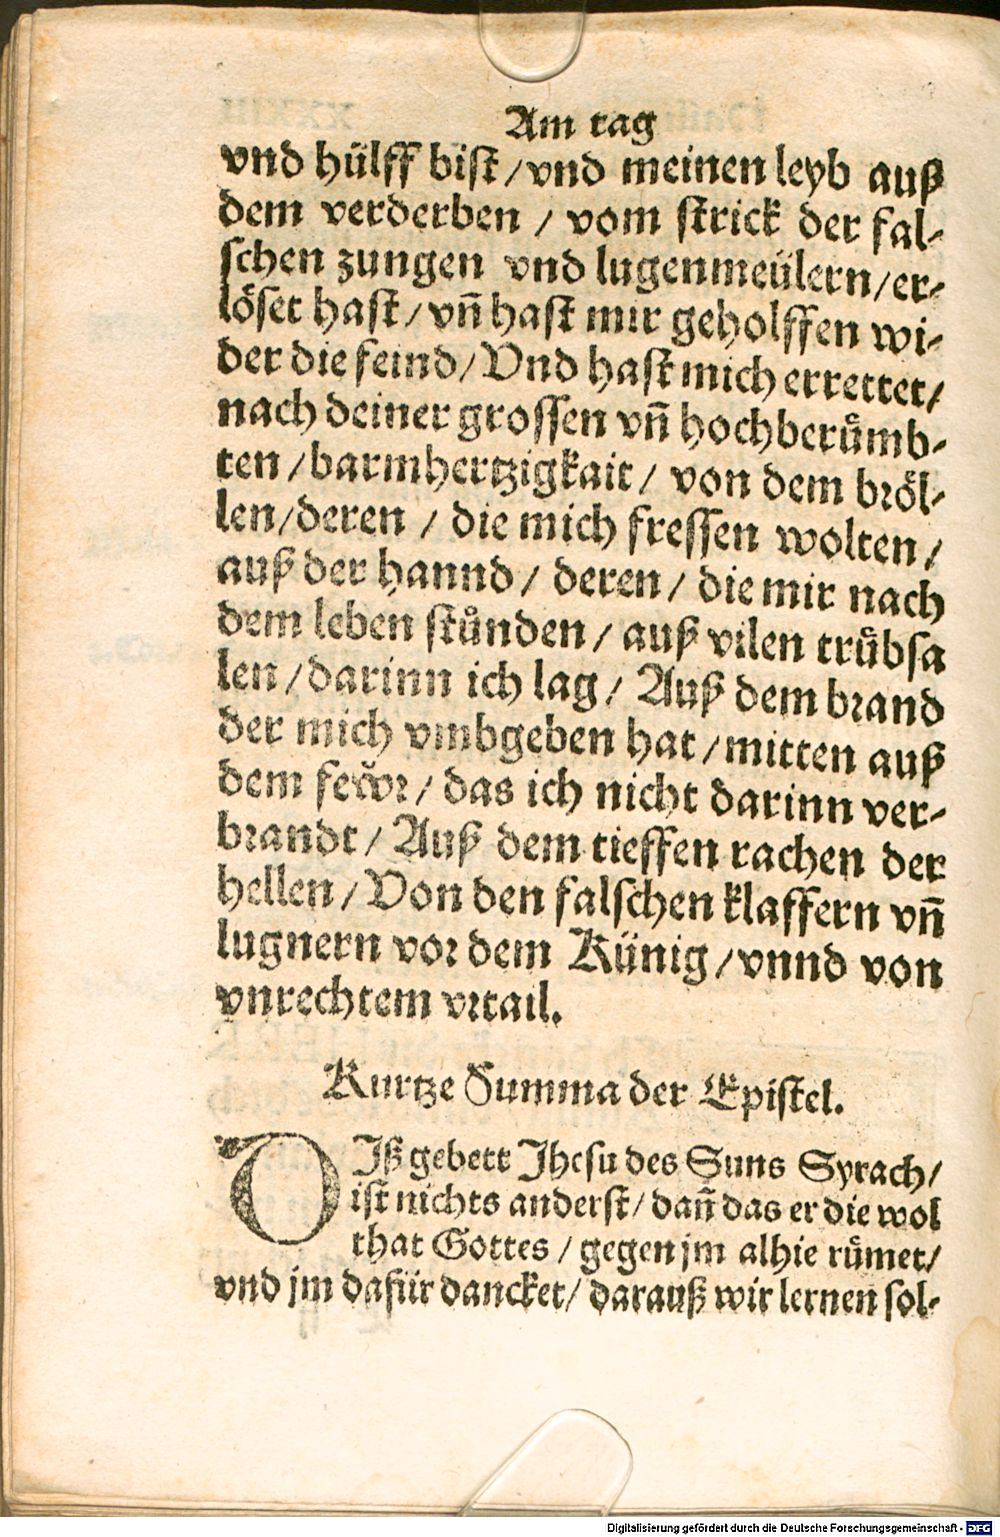 Am tag
vnd hülff bist / vnd meinen leyb auß
dem verderben / vom strick der fal-
schen zungen vnd lugenmeülern / er-
löset hast / vñ hast mir geholffen wi-
der die feind / Vnd hast mich errettet /
nach deiner grossen vñ hochberůmb-
ten / barmhertzigkait / von dem bröl-
len / deren / die mich fressen wolten /
auß der hannd / deren / die mir nach
dem leben stůnden / auß vilen trůbsa
len / darinn ich lag / Auß dem brand
der mich vmbgeben hat / mitten auß
dem fewr / das ich nicht darinn ver-
brandt / Auß dem tieffen rachen der
hellen / Von den falschen klaffern vñ
lugnern vor dem Künig / vnnd von
vnrechtem vrtail.
Kurtze Summa der Epistel.
DIß gebett Jhesu des Suns Syrach /
ist nichts anderst / dañ das er die wol
that Gottes / gegen jm alhie růmet /
vnd jm dafür dancket / darauß wir lernen sol-
Digitalisierung gefördert durch die Deutsche Forschungsgemeinschaft - DFG